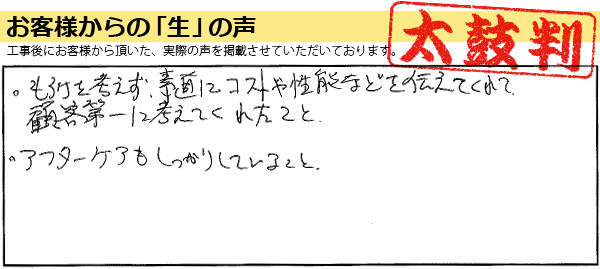 お客様からの「生」の声
太鼓判
工事後にお客様から頂いた、実際の声を掲載させていただいております。
。もうけを考えず、素直にコストや性能などを伝えてくれて、
顧客第一に考えてくれたこと。
。アフターケアもしっかりしていること。